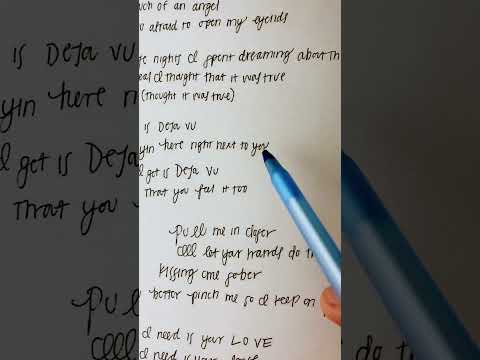 uch of an angel
o afraid to open my eyelids
e nights I spent dreaming about Th
eal I thought that it was true
(Thought it was true)
is Deja Vu
yin here right next to you
I get is Deja Vu
That you feel it too
pull me in closer
let your hands do th
kissing me sober
better pinch me so I keep on
I need is your LOVE
I need is your love